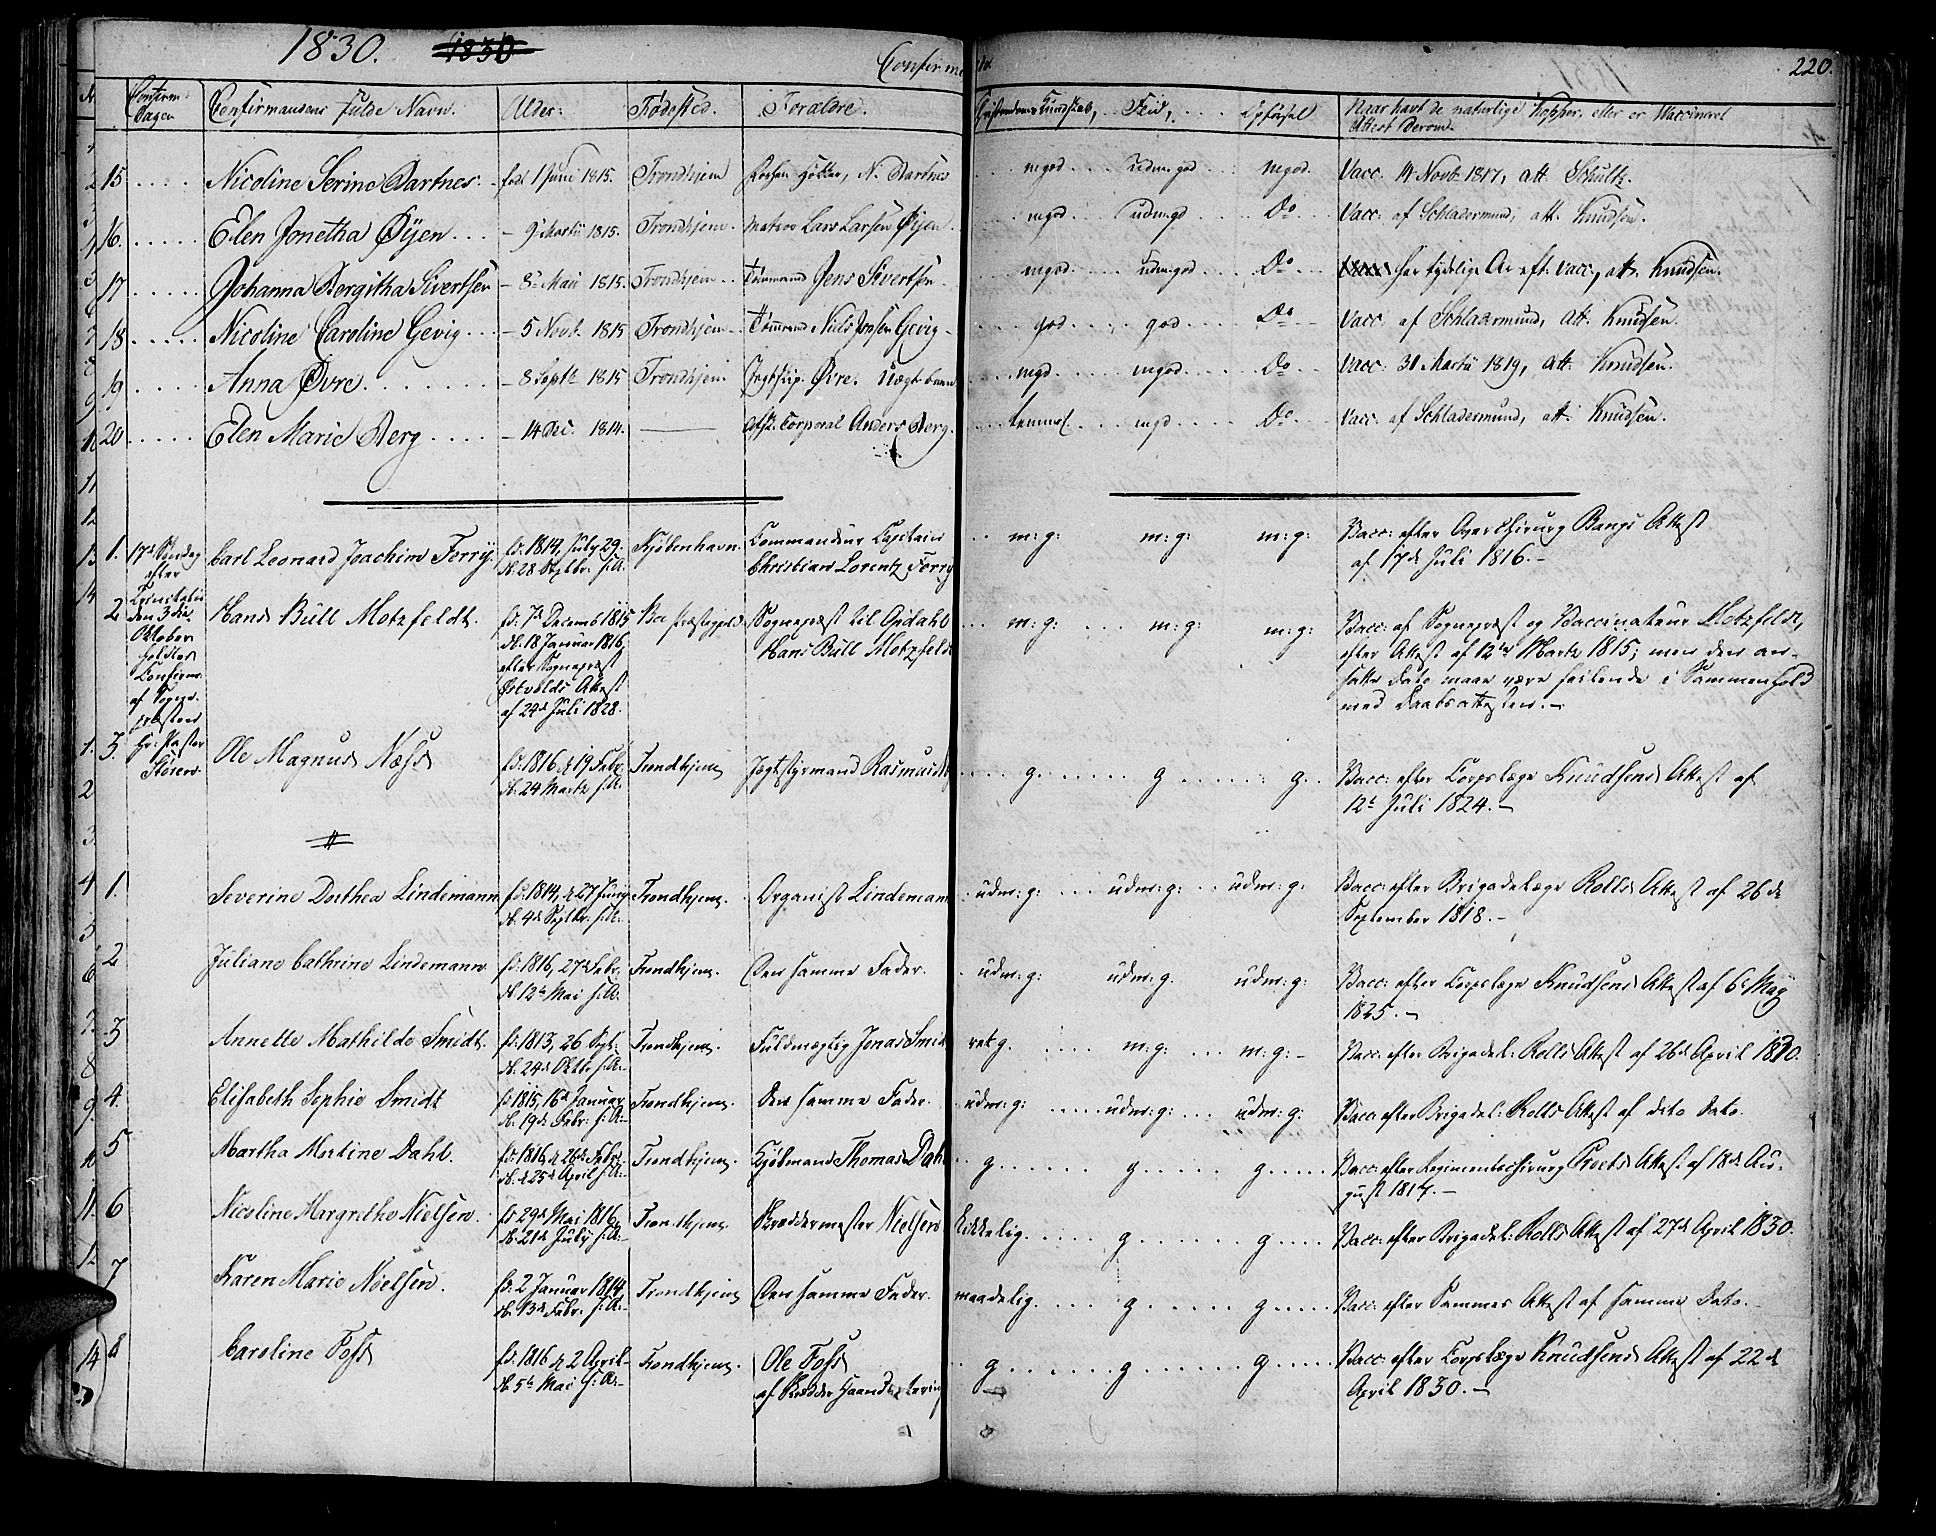 1830. 1830
Confirme
220.
Confirm: Dagen
Confirmandens fulde Navn. Alder: Fødested. Forældre. Christendoms Kundskab, Flid, Opførsel Naar havt de naturlige Kopper, eller er Vaccineret
Attest derom.
15 Nicoline Serine Bartnes. født 1 Juni 1815. Trondhjem N. Bartnes mgod udm:god mgod. Vacc. 14 Novbr 1817, att. Schultz.
16. Elen Jonetha Øyen - 9 Martii 1815. Trondhjem. Matros Lars Larsen Øyen. mgod udm:gd Do Vacc: af Schladermund, att. Knudsen.
17 Johanna Bergitha Sivertsen - 8 Maii 1815. Trondhjem Tømmermand Jens Sivertsen mgod. udm:god Do har tydelige Ar eft. Vacc, att. Knudsen.
18 Nicoline Caroline Gevig - 5 Novb. 1815 Trondhjem Niels Jensen Gevig god god Do Vacc. af Schladermund, att. Knudsen.
19 Anna Øvre - 8 Septb 1815 Trondhjem Øvre. mgd. mgod Do Vacc. 31 Martii 1819, att. Knudsen.
20 Elen Marie Berg - 14 Dec. 1814. Afsk. Corporal Anders Berg. temmel. mgd Do Vacc. af Schladermund, att. Knudsen.
1. 17de Søndag Carl Leonard Joachim Ferry. fd: 1814, July 29. Kjøbenhavn. Commandeur Capitain m:g: m:g: m:g: Vacc: efter Overchirurg Bangs Attest
efter db. 28 Septbr. s:A: Christian Lorentz Ferry af 17de Juli 1816.-
Trinitatis
2 den 3die Hans Bull Motzfeldt. fd: 7de Decemb 1815 Boe Præstegjeld Sognepræst til Opdahl m:g: m:g: m:g: Vacc: af Sognepræst og Vaccinateur Motzfeldt,
Oktober db. 18 Januar 1816, Hans Bull Motzfeldt efter Attest af 12te Marts 1815; men den an-
holdt efter Sognepræst satte Dato maae være feilende i Sammenhold
Confirm. Østvolds Attest med Daabsattesten.-
af Sogne- af 24de Juli 1828.
præsten
3. Hr: Pastor Ole Magnus Næss fd: 1816 d. 19 Febr. Trondhjem Jægtstyrmand Rasmus g g g. Vacc: efter Corpslæge Knudsens Attest af
Støren db. 24 Marts s:A: 12te Juli 1824.-
1. Severine Dorthea Lindemann fd: 1814, d. 27 Juny Trondhjem. Organist Lindemann udm:g: udm:g: udm:g: Vacc: efter Brigadelæge Rolls Attest af 26de
db. 4de Septbr. s:A: September 1818.-
2 Juliane Cathrine Lindemann. fd: 1816, 27de Febr. Trondhjem. Den samme Fader. udm:g: udm:g. udm:g: Vacc: efter Corpslæge Knudsens Attest af 6te May
db. 12te Mai s:A: 1825.-
3 Annette Mathilde Smidt. fd: 1813, 26 Sept. Trondhjem. Fuldmægtig Jonas Smidt m:g: m:g:- Vacc: efter Brigadel: Rolls Attest af 26de April 1830.
db. 24de Oktbr s:A:
4. Elisabeth Sophie Smidt fd: 1815, 16de Januar Trondhjem. Den samme Fader. udm:g: udm:g: udm:g: Vacc: efter Brigadel: Rolls Attest af dito Dato.
db. 19de Febr: s:A:-
5 Martha Martine Dahl. fd: 1816, d. 26de Febr. Trondhjem. Kjøbmand Thomas Dahl g g g Vacc: efter Regimentschirurg Attest af 18de Au-
db. d. 25de April s:A: gust 1817.-
6 Nicoline Margrethe Nielsen. fd: 29de Mai 1816, Trondhjem Skreddermester Nielsen Skikkelig g g Vacc: efter Brigadel: Rolls Attest af 27de April 1830.
db. 21de July s:A:
7 Karen Marie Nielsen. fd: 2 Januar 1814, Trondhjem Den samme Fader. maadelig g g Vacc: efter Sammes Attest af samme Dato.
db. 13de Febr. s:A:
8 Caroline Foss fd: 1816 d. 2 April Trondhjem. Ole Foss g g g Vacc: efter Corpslæge Knudsens Attest af 22de
db. 5te Mai s:A:- af Skrædder Haandtering April 1830.-